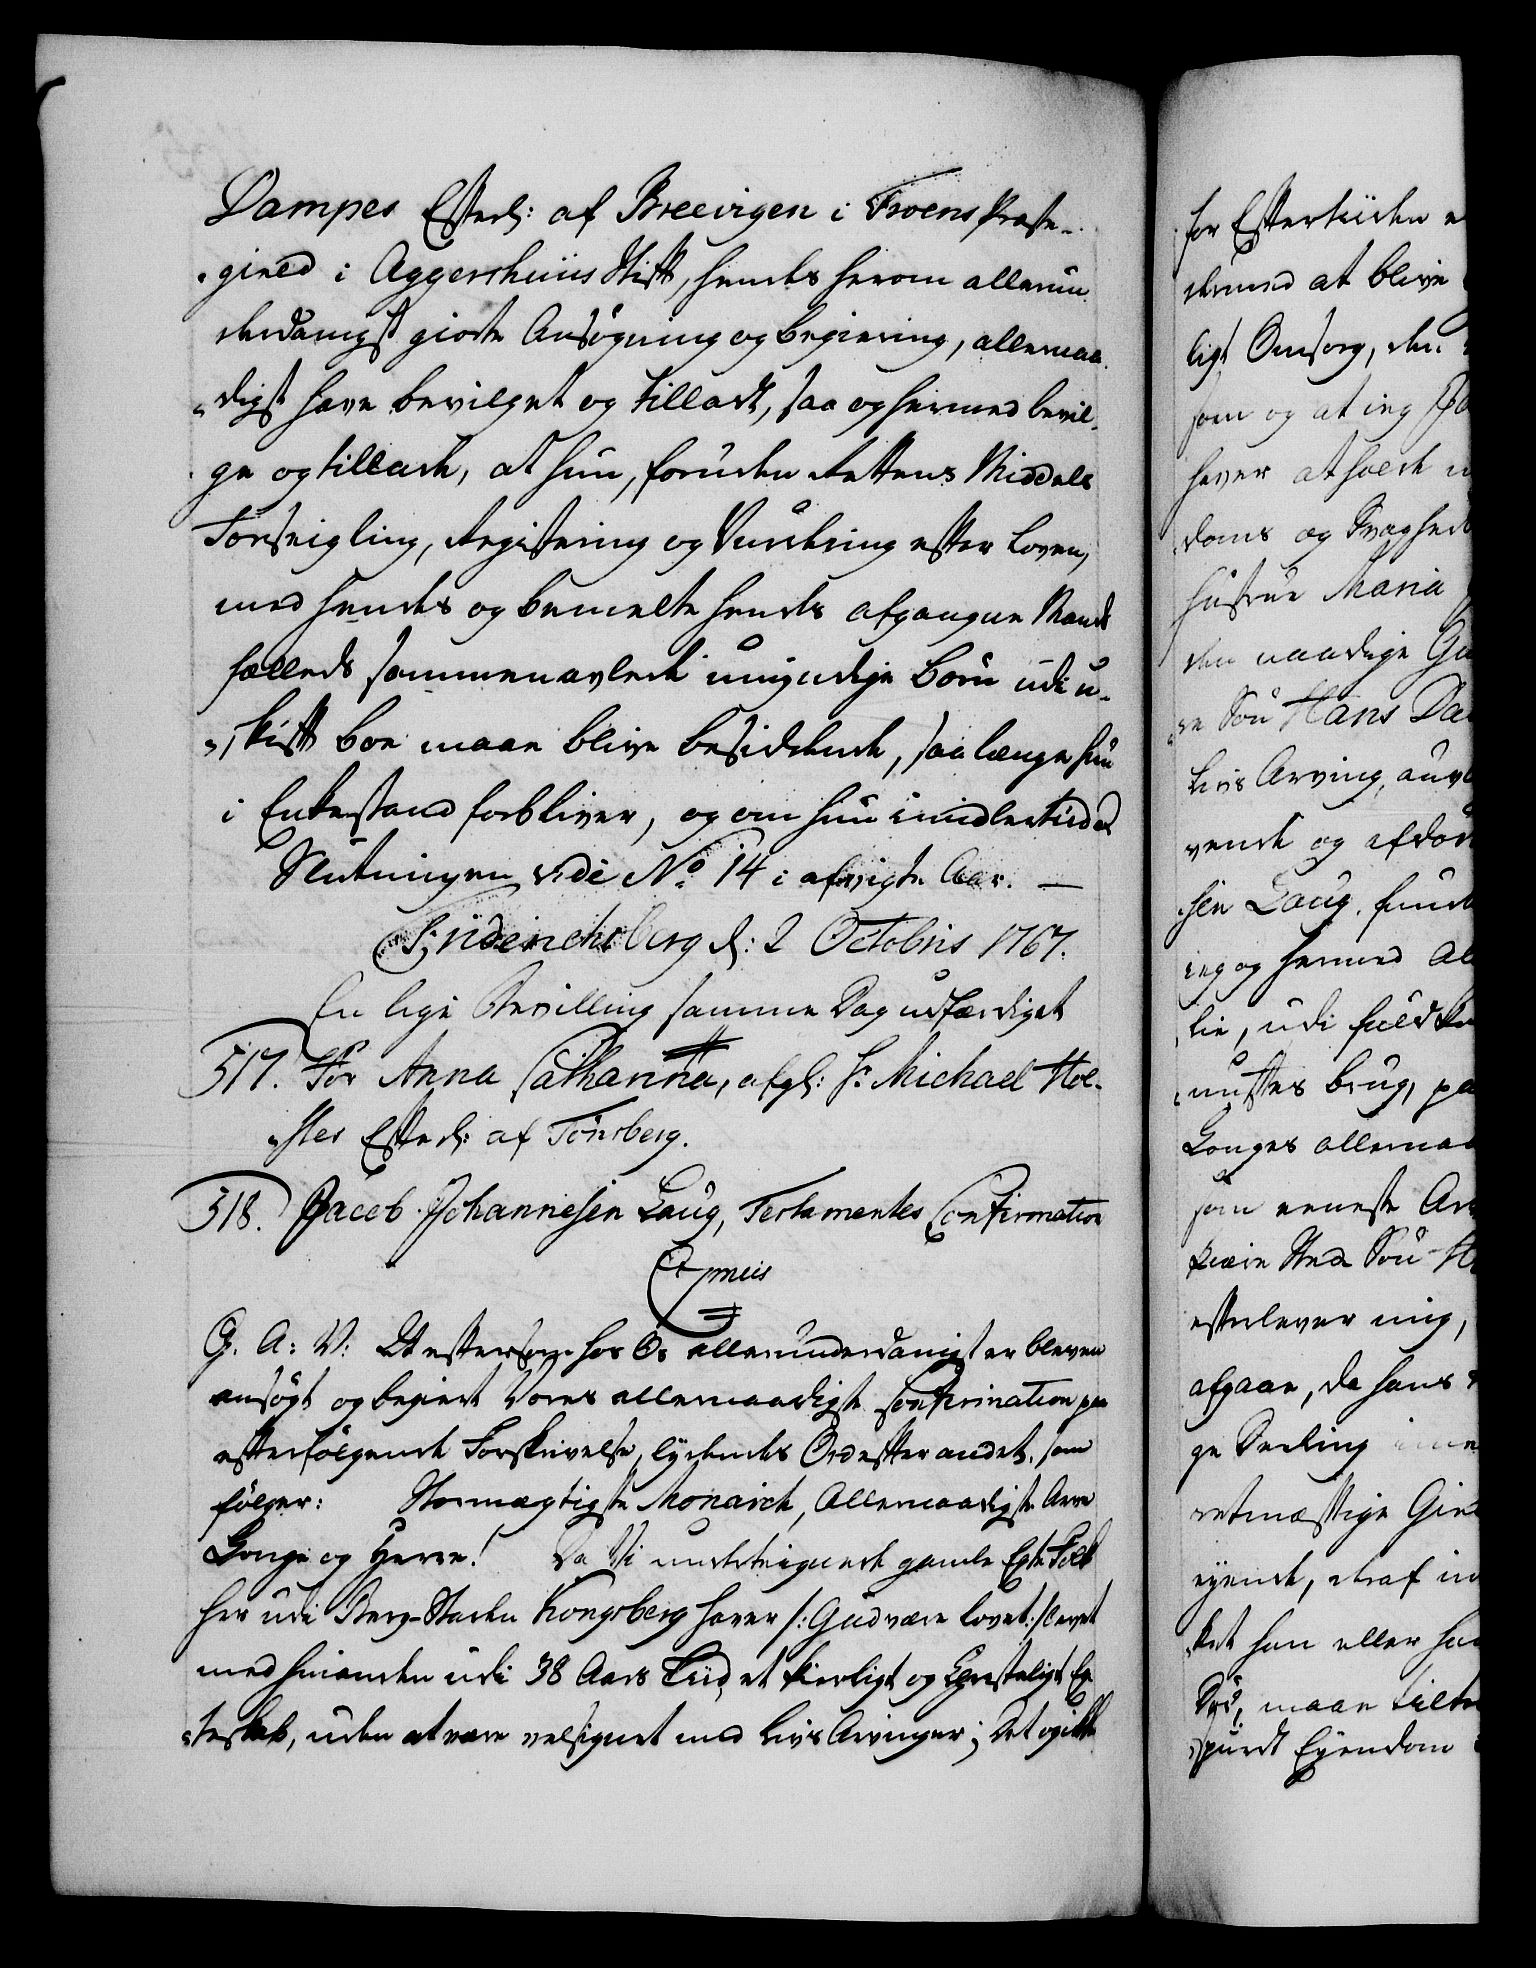 Dampes Efterl: af Breevigen i Froens Præste-
gield i Aggershuus Stift, hendes herom allerun-
derdanigst giorte Ansøgning og begiering, allernaa-
digst have bevilget og tilladt, saa og hermed bevil-
ge og tillade, at hun, foruden Rettens Middels
Forseigling, Registering og Vurdering efter Loven,
med hendes og bemelte hendes afgangne Mands
fælleds sammenavlede umyndige børn udi u-
skift boe maae blive besiddende, saa længe hun
i Enkestand forbliver, og om hun imidlertid
Slutningen vide No 14 i afvigte Aar. —
Friderichsberg d: 2 Octobris 1767.
En lige Bevilling samme Dag udfærdiget
517. For Anna Catharina, afgl: Sr Michael Hol-
sters Efterl: af Tønsberg.
518. Jacob Johannesen Laug, Testamentes Confirmation
Expressis
G. A: V: At eftersom hos Os allerunderdanigst er bleven
ansøgt og begiert Vores allernaadigste Confirmation paa
efterfølgende Forskrivelse, lydendes Ord efter andet, som
følger: Stormægtigste Monarch, Allernaadigste Arve
Konge og Herre! Da Vi undertegnede gamle Egte Folk
her udi Berg-Staden Kongsberg haver /: Gud være lovet :/ levet
med hinanden udi 38 Aars Tiid, et kierligt og Christeligt Eg-
teskab, uden at være velsignet med Livs Arvinger; Det og ikke
for Eftertiiden
derved at blive
ligt Omsorg, den
som og at ieg
haver at holde
doms og Svaghed
hustrue Maria
den naadige Gu
Søn Hans Da
Livs Arving,
vende og afdøde
sen Laug,
ieg og hermed
lie, udi fuldko
nuftes brug, paa
Konges allernaa
som eneste Ar
kiære Sted Søn
efterlever mig,
afgaae, da hans
ge Deeling
retmæssige
eyende, deraf
ket han eller
Død, maae tilt
spurdt Eyendom